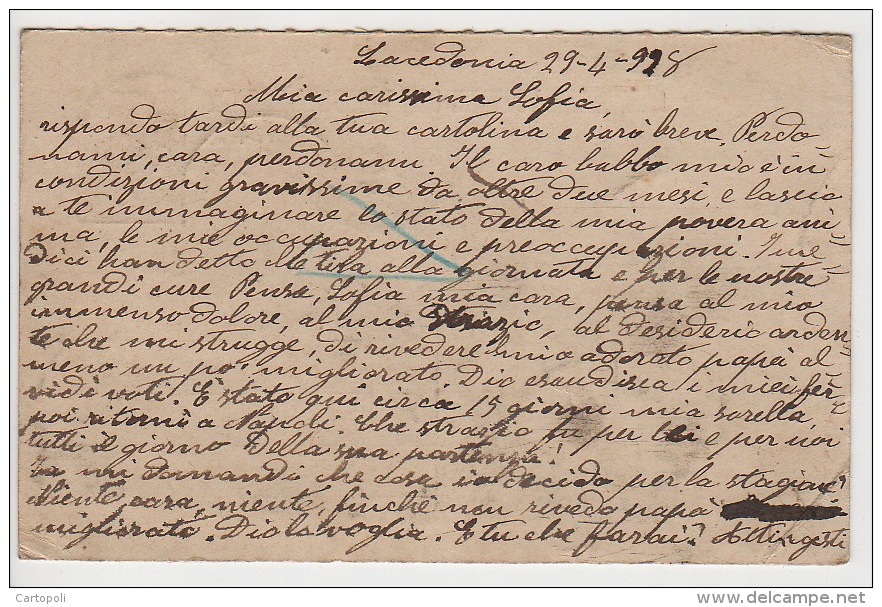 Lacedonia 29-4-928
Mia carissima Sofia,
rispondo tardi alla tua cartolina e sarò breve. Perdo-
nami, cara, perdonami. Il caro babbo mio è in
condizioni gravissime da oltre due mesi, e lascio
a te immaginare lo stato della mia povera ani-
ma, le mie occupazioni e preoccupazioni. I me-
dici han detto che tira alla giornata e per le nostre
grandi cure. Pensa, Sofia mia cara, pensa al mio
immenso dolore, al mio strazio, al desiderio arden-
te che mi strugge, di rivedere il mio adorato papà al-
meno un po' migliorato. Dio esaudisca i miei fer-
vidi voti. È stato qui circa 15 giorni mia sorella,
poi ritornò a Napoli. Che strazio fu per lei e per noi
tutti il giorno della sua partenza!
Tu mi domandi che cosa io decido per la stagione?
Niente, cara, niente, finchè non rivedo papà
migliorato. Dio lo voglia. E tu che farai?
Cartopoli
www.delcampe.net